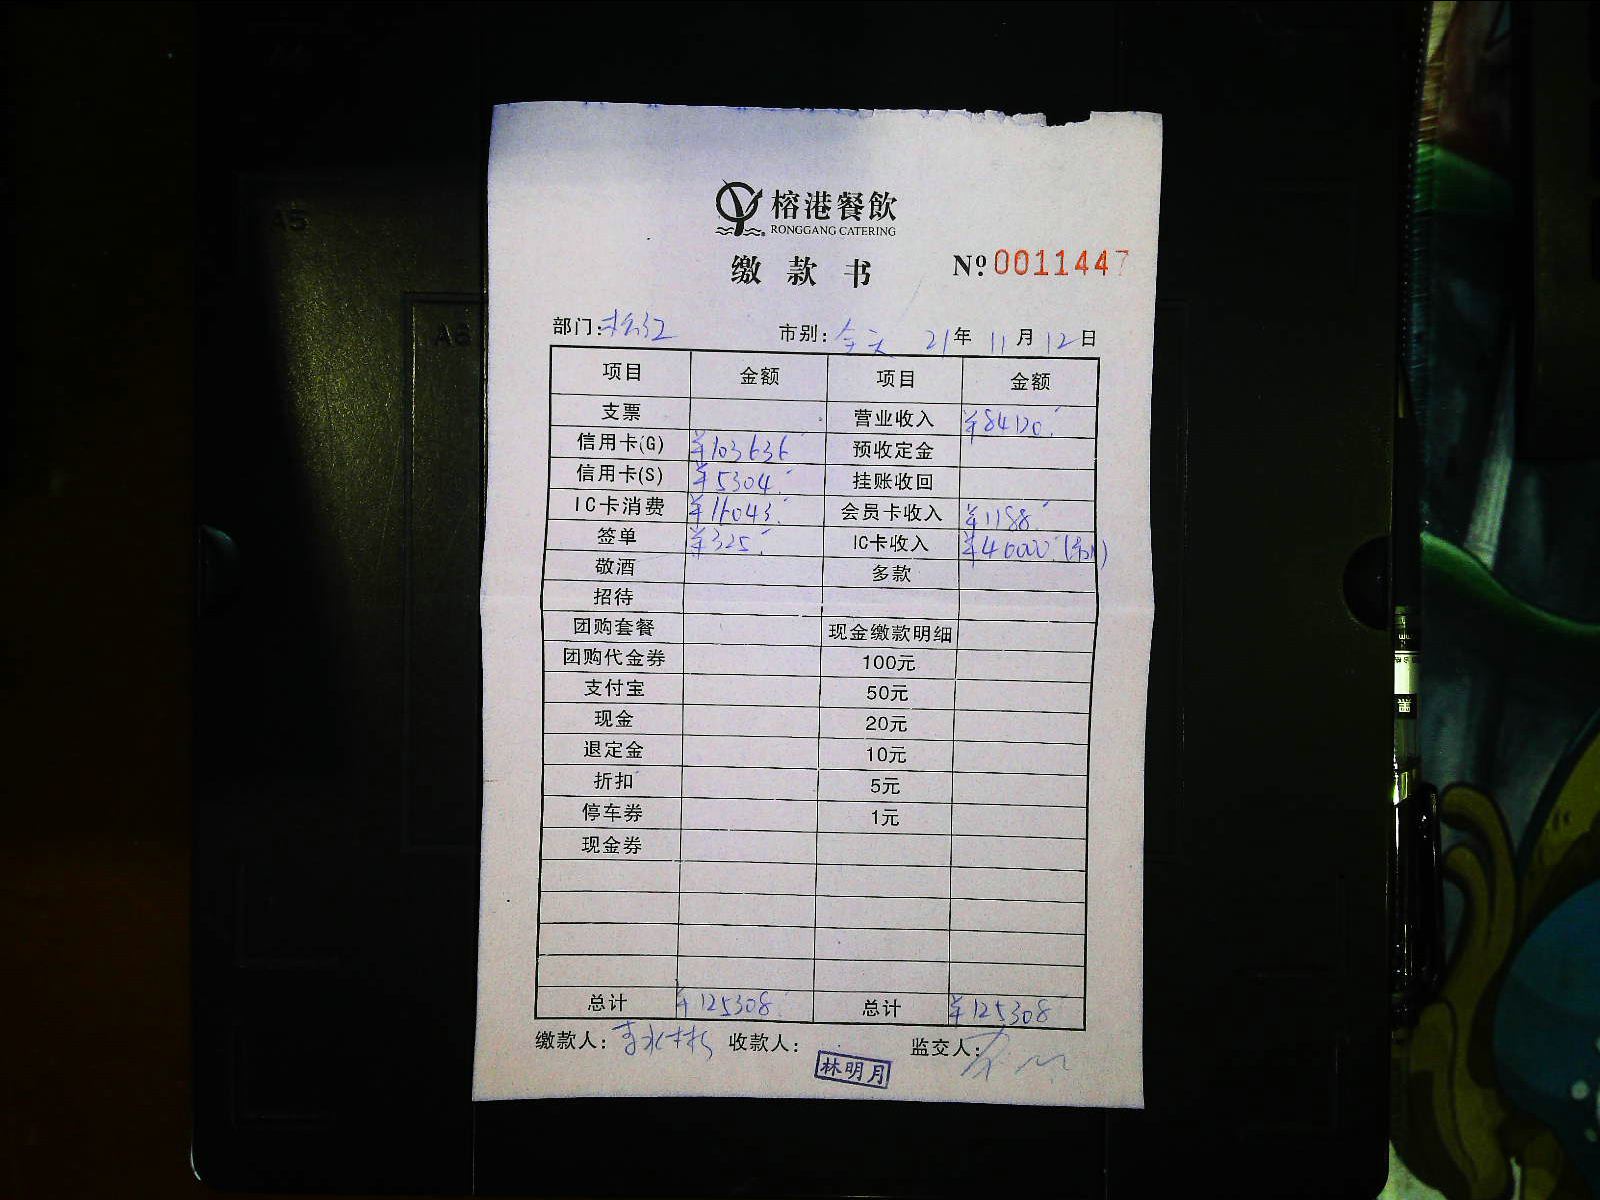 A5
A6
榕港餐飲
RONGGANG CATERING
缴款书 Nº 0011447
部门: 市别: 全天 21年 11月 12日
项目 金额 项目 金额
支票 营业收入 ¥84120
信用卡(G) ¥103636 预收定金
信用卡(S) ¥5304 挂账收回
IC卡消费 ¥16043 会员卡收入 ¥1188
签单 ¥325 IC卡收入 ¥40000
敬酒 多款
招待
团购套餐 现金缴款明细
团购代金券 100元
支付宝 50元
现金 20元
退定金 10元
折扣 5元
停车券 1元
现金券
总计 ¥125308 总计 ¥125308
缴款人: 收款人: 林明月 监交人: